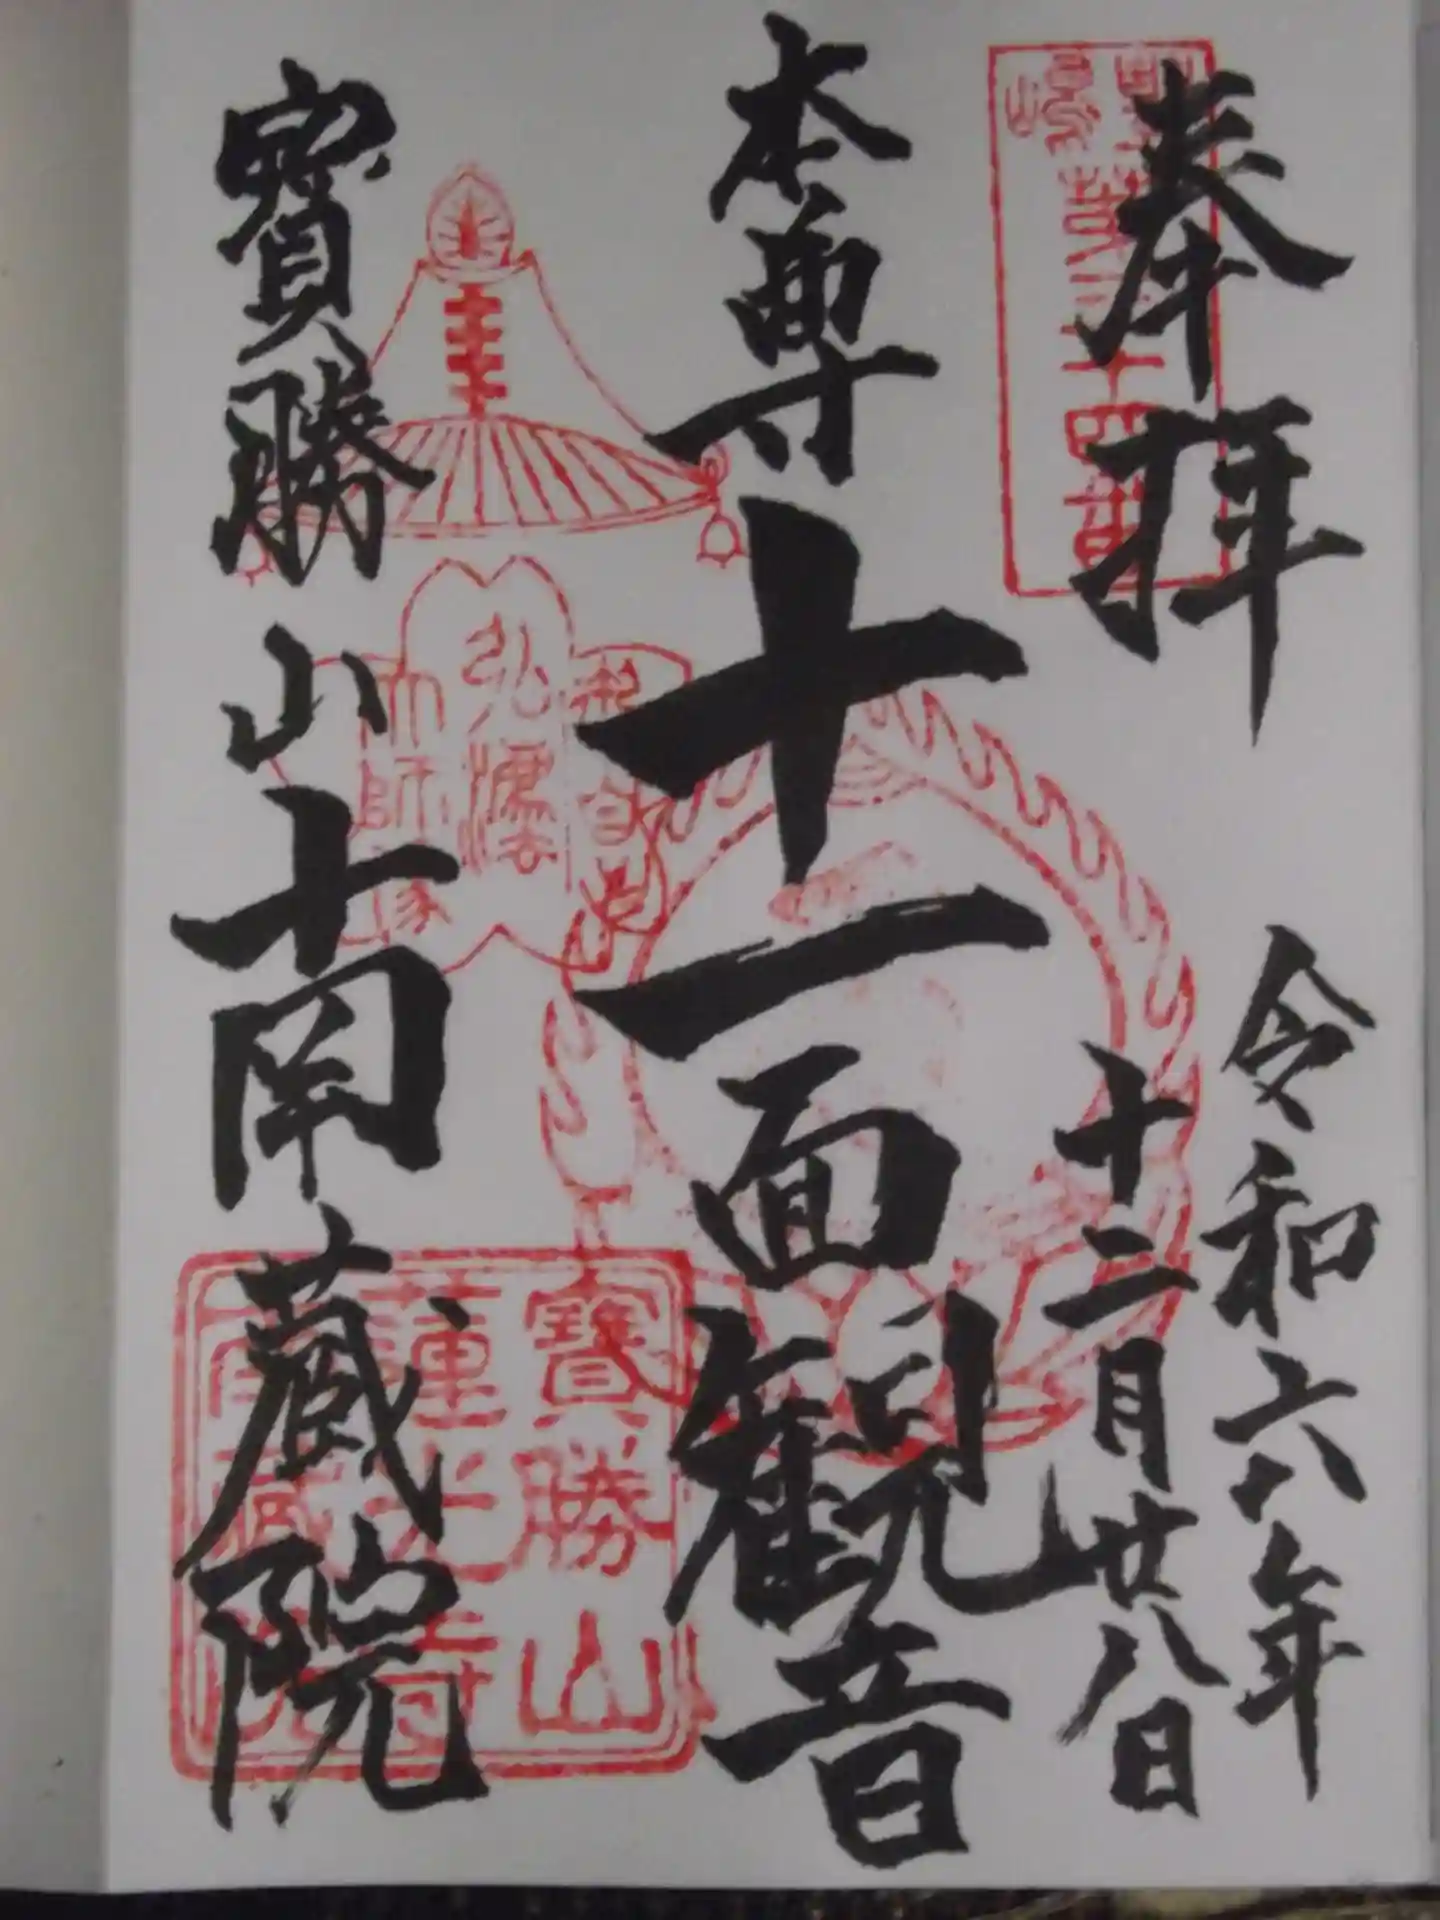 奉拝
令和六年
十二月廿八日
本尊
十一面観音
寳勝山南蔵院
弘法
大師
寳勝山
蓮光寺
南蔵院